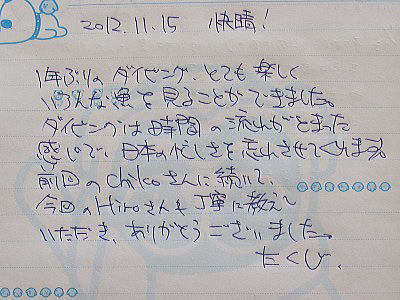 2012.11.15 快晴!
1年ぶりのダイビング、とても楽しく
いろんな魚を見ることができました。
ダイビングは時間の流れがとまった
感じで、日本の忙しさを忘れさせてくれます。
前回のChikoさんに続いて、
今回のHiroさんも丁寧に教えて
いただき、ありがとうございました。
たくひ.